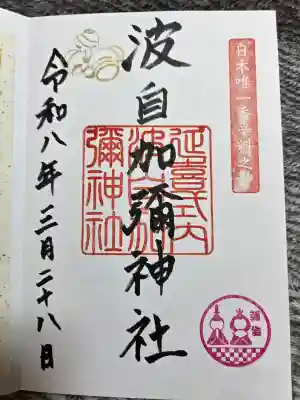 日本唯一香辛料之
波自加彌神社
延喜式内
波自加
彌神社
令和八年三月二十八日